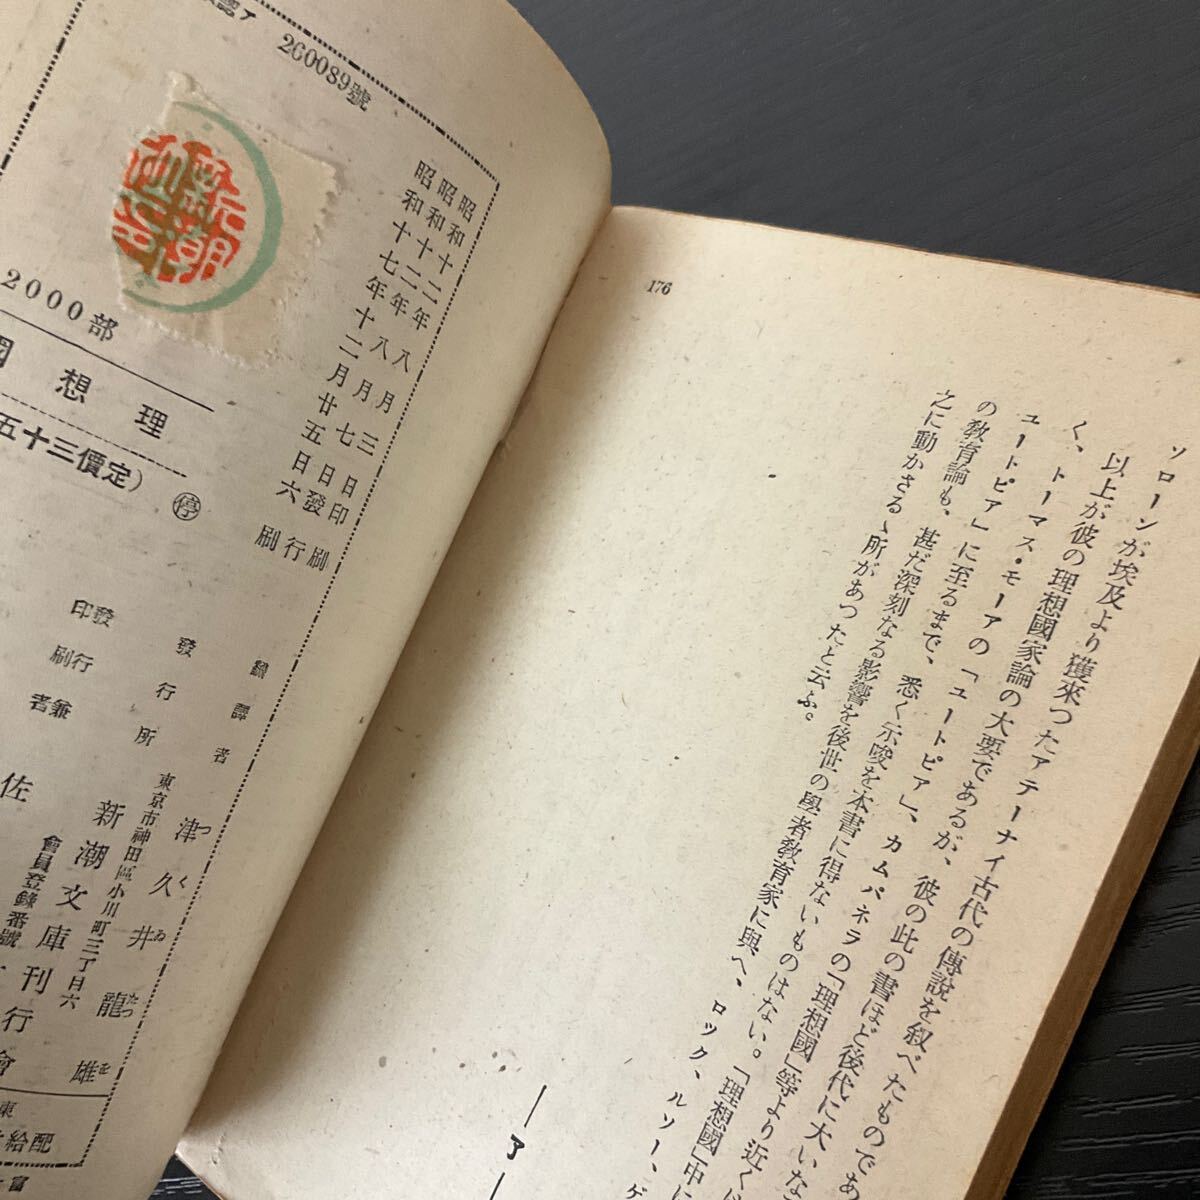 176
ソローンが埃及より獲來つたアテーナイ古代の傳說を叙べたものであ
以上が彼の理想國家論の大要であるが、彼の此の書ほど後代に大いな
く、トーマス・モーアの「ユートピア」、カムパネラの「理想國」等より近くは
ユートピア」に至るまで、悉く示唆を本書に得ないものはない。「理想國」中に
の敎育論も、甚だ深刻なる影響を後世の學者敎育家に與へ、ロック、ルソー、ゲ
之に動かさるゝ所があつたと云ふ。
―了―
認ア
260089號
新潮
2000部
昭和十二年八月三日印刷
昭和十二年八月七日發行
昭和十七年十二月廿五日六刷
國想理
五十三價定）
停
譯者 津久井龍雄
つくゐたつを
發行所 新潮文庫刊行會
東京市神田區小川町三丁目六
會員登錄番號
發行兼
印刷者
佐
東
配給
富